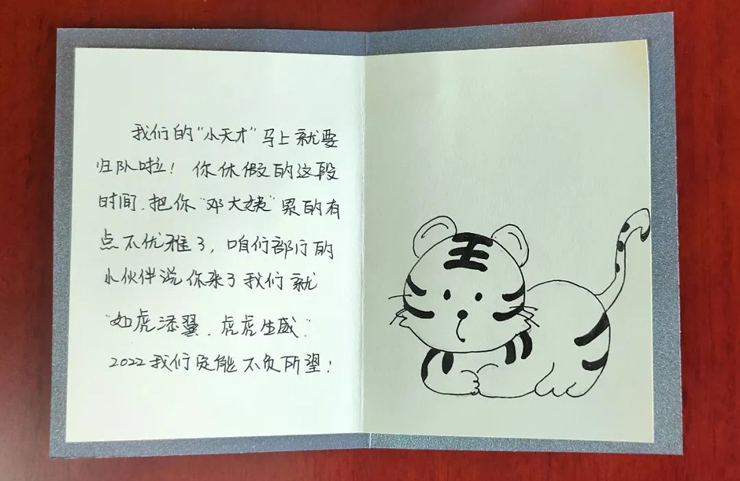 我们的“小天才”马上就要
归队啦！你休假的这段
时间，把你“邓大姨”累的有
点不优雅了，咱们部门的
小伙伴说你来了我们就
“如虎添翼，虎虎生威”
2022我们定能不负所望！
王